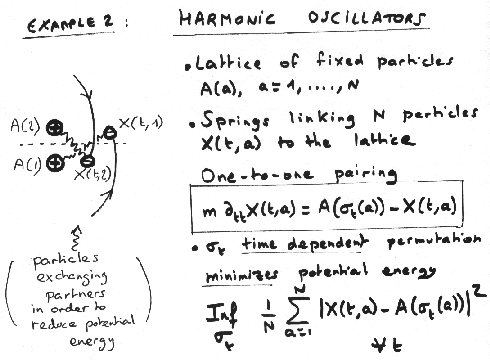 EXAMPLE 2 : HARMONIC OSCILLATORS
• Lattice of fixed particles
A(a), a = 1, ...., N
• Springs linking N particles
X(t,a) to the lattice
One-to-one pairing
m ∂ₜₜX(t,a) = A(σₜ(a)) - X(t,a)
• σₜ time dependent permutation
minimizes potential energy
Inf σₜ 1/N ∑ a=1 N |X(t,a) - A(σₜ(a))|²
∀ t
A(2) ⊕ ⊖ X(t,1)
A(1) ⊕ ⊖ X(t,2)
particles
exchanging
partners
in order to
reduce potential
energy